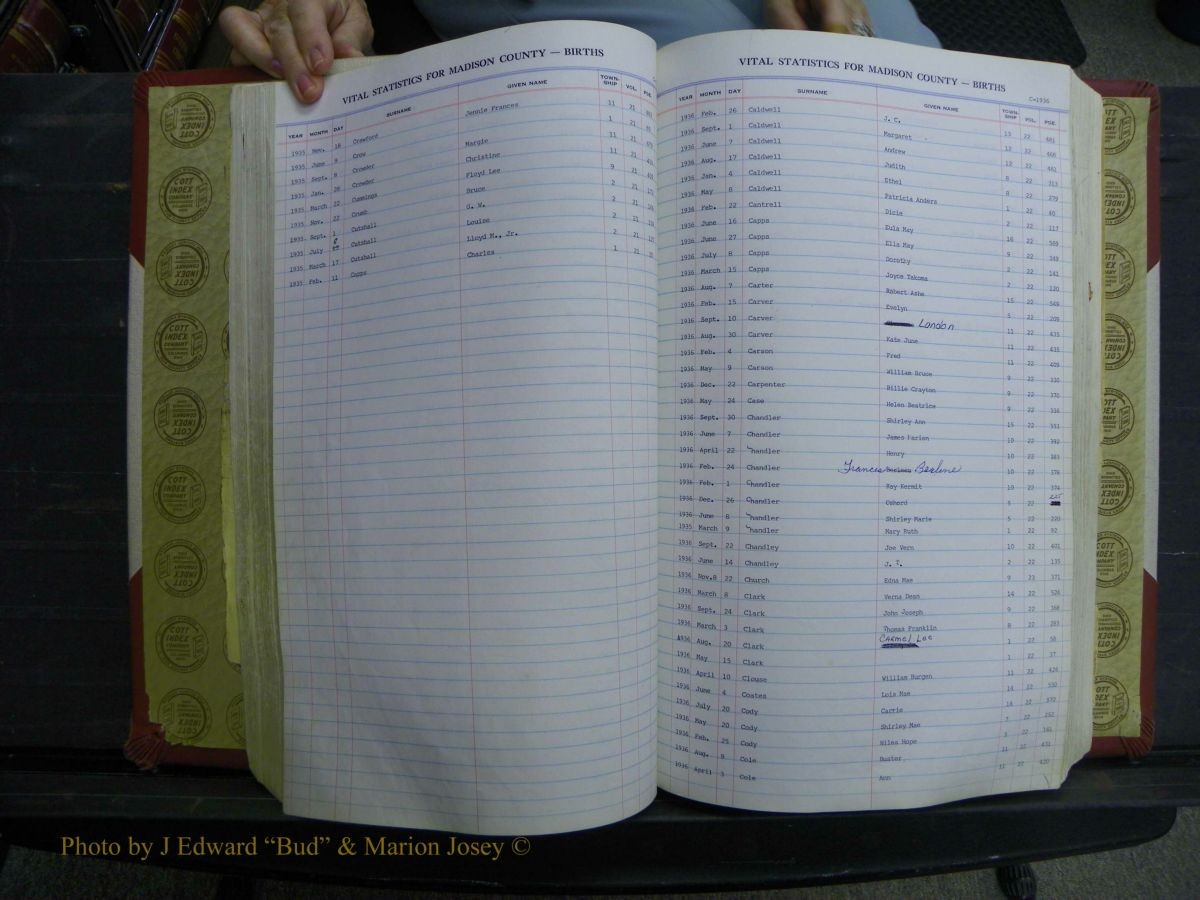 VITAL STATISTICS FOR MADISON COUNTY — BIRTHS
YEAR MONTH DAY SURNAME GIVEN NAME TOWN-SHIP VOL. PGE.
1935 Nov. 18 Crawford Jennie Frances 11 21
1935 June 9 Crow 1 21
1935 Sept. 8 Crowder Margie 11 21
1935 Jan. 28 Crowder Christine 11 21
1935 March 22 Cummings Floyd Lee 9 21
1935 Nov. 22 Crumb Bruce 2 21
1935 Sept. 1 Cutshall G. W. 2 21
1935 July 8 Cutshall Louise 2 21
1935 March 17 Cutshall Lloyd M., Jr. 2 21
1935 Feb. 11 Capps Charles 1 21
VITAL STATISTICS FOR MADISON COUNTY — BIRTHS
C-1936
YEAR MONTH DAY SURNAME GIVEN NAME TOWN-SHIP VOL. PGE.
1936 Feb. 26 Caldwell J. C. 13 22 481
1936 Sept. 1 Caldwell Margaret 12 22 466
1936 June 7 Caldwell Andrew 12 22 461
1936 Aug. 17 Caldwell Judith 8 22 313
1936 Jan. 4 Caldwell Ethel 8 22 279
1936 May 8 Caldwell Patricia Anders 1 22 40
1936 Feb. 22 Cantrell Dicie 2 22 117
1936 June 16 Capps Eula May 16 22 569
1936 June 27 Capps Ella May 9 22 349
1936 July 8 Capps Dorothy 2 22 141
1936 March 15 Capps Joyce Takoma 2 22 120
1936 Aug. 7 Carter Robert Ashe 15 22 569
1936 Feb. 15 Carver Evelyn 5 22 209
1936 Sept. 10 Carver London 11 22 435
1936 Aug. 30 Carver Kate June 11 22 435
1936 Feb. 4 Carson Fred 11 22 409
1936 May 9 Carson William Bruce 9 22 330
1936 Dec. 22 Carpenter Billie Crayton 9 22 370
1936 May 24 Case Helen Beatrice 9 22 336
1936 Sept. 30 Chandler Shirley Ann 15 22 551
1936 June 7 Chandler James Harlon 10 22 392
1936 April 22 Chandler Henry 10 22 383
1936 Feb. 24 Chandler Francis Berline 10 22 378
1936 Feb. 1 Chandler Ray Kermit 10 22 374
1936 Dec. 26 Chandler Oshord 5 22
1936 June 8 Chandler Shirley Marie 5 22 220
1935 March 9 Chandler Mary Ruth 1 22 92
1936 Sept. 22 Chandley Joe Vern 10 22 401
1936 June 14 Chandley J. T. 2 22 135
1936 Nov.8 22 Church Edna Mae 9 23 371
1936 March 8 Clark Verna Dean 14 22 526
1936 Sept. 24 Clark John Joseph 9 22 368
1936 March 3 Clark Thomas Franklin 8 22 283
1936 Aug. 20 Clark Carmel Lee 1 22 58
1936 May 15 Clark 1 22 37
1936 April 10 Clouse William Burgen 11 22 424
1936 June 4 Coates Lois Mae 14 22 530
1936 July 20 Cody Carrie 16 22 572
1936 May 20 Cody Shirley Mae 7 22 252
1936 Feb. 25 Cody Niles Hope 3 22 161
1936 Aug. 9 Cole Buster 11 22 431
1936 April 3 Cole Ann 11 22 420
Photo by J Edward “Bud” & Marion Josey ©
COTT INDEX COMPANY